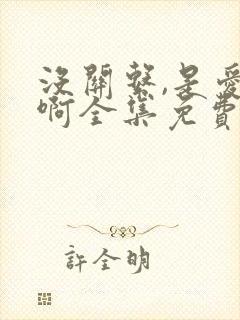 沒關繫,是愛
啊全集免費
許全明